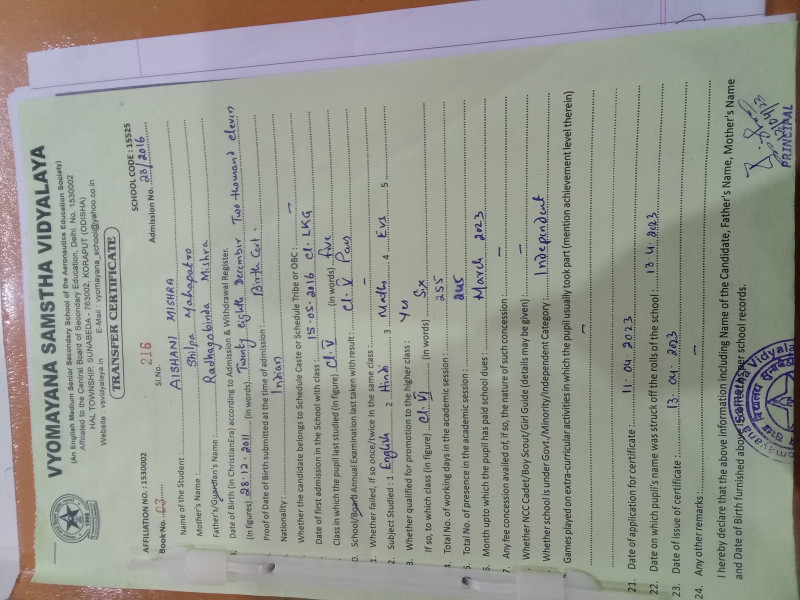 VYOMAYANA SAMSTHA VIDYALAYA
(An English Medium Senior Secondary School of the Aeronautics Education Society)
Affiliated to the Central Board of Secondary Education, Delhi, No. 1530002
HAL TOWNSHIP, SUNABEDA - 763002, KORAPUT (ODISHA)
Website : vsvidyalaya.in E-Mail : vyomayana_school@yahoo.co.in
TRANSFER CERTIFICATE
AFFILIATION NO. : 1530002 SCHOOL CODE : 15525
Book No. 03 Sl.No. 216 Admission No. 23/2016
Name of the Student : AISHANI MISHRA
Mother's Name : Shilpa Mahapatro
Father's/Guardian's Name : Radhagobinda Mishra
Date of Birth (in Christian Era) according to Admission & Withdrawal Register.
(in figures) 28.12.2011 (in words) Twenty eighth December Two thousand eleven
Proof of Date of Birth submitted at the time of admission : Birth Cert.
Nationality : Indian
Whether the candidate belongs to Schedule Caste or Schedule Tribe or OBC : —
Date of first admission in the School with class : 15.05.2016 Cl. LKG
Class in which the pupil last studied (in figure) Cl. V (in words) five
0. School/Board Annual Examination last taken with result : Cl. V Pass
1. Whether failed, if so once/twice in the same class : —
2. Subject Studied : 1 English 2 Hindi 3 Maths 4 Evs 5
3. Whether qualified for promotion to the higher class : Yes
If so, to which class (in figure) Cl. VI (in words) Six
4. Total No. of working days in the academic session : 255
5. Total No. of presence in the academic session : 245
6. Month upto which the pupil has paid school dues : March 2023
7. Any fee concession availed of, if so, the nature of such concession : —
Whether NCC Cadet/Boy Scout/Girl Guide (details may be given) : —
Whether school is under Govt./Minority/Independent Category : Independent
Games played on extra-curricular activities in which the pupil usually took part (mention achievement level therein)
—
21. Date of application for certificate : 11.04.2023
22. Date on which pupil's name was struck off the rolls of the school : 13.4.2023
23. Date of issue of certificate : 13.04.2023
24. Any other remarks : —
I hereby declare that the above information including Name of the Candidate, Father's Name, Mother's Name
and Date of Birth furnished above is correct as per school records.
PRINCIPAL